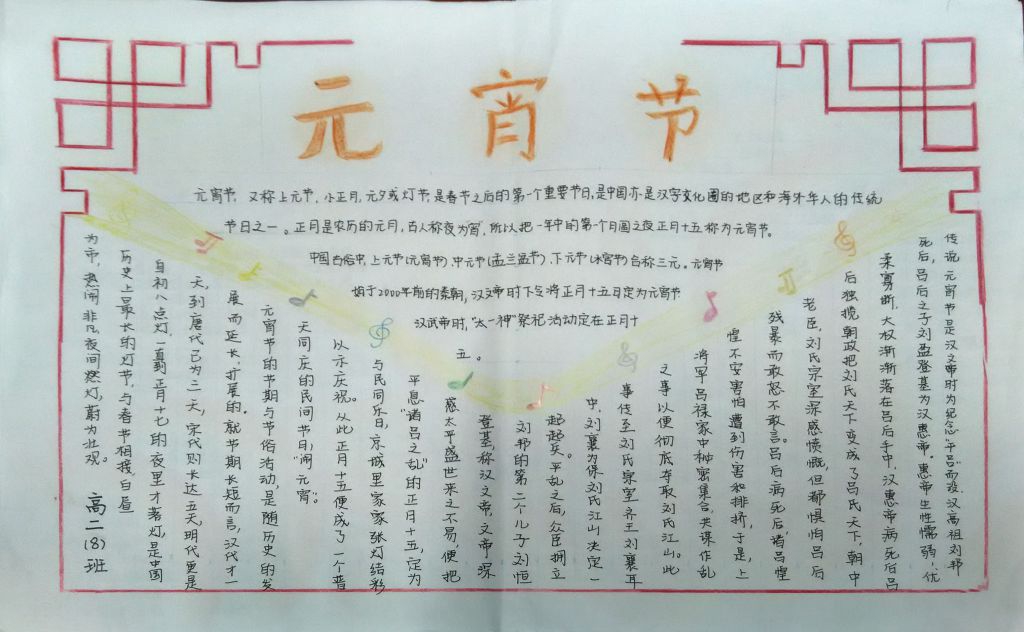 元宵节
元宵节,又称上元节,小正月,元夕或灯节,是春节之后的第一个重要节日,是中国亦是汉字文化圈的地区和海外华人的传统
节日之一。正月是农历的元月,古人称夜为宵,所以把一年中的第一个月圆之夜正月十五称为元宵节。
中国古俗中,上元节(元宵节)中元节(盂兰盆节).下元节(水官节)合称三元。元宵节
始于2000年前的秦朝,汉文帝时下令将正月十五日定为元宵节
汉武帝时,“太一神”祭祀活动定在正月十
五。
传说元宵节是汉文帝时为纪念“平吕”而设,汉高祖刘邦
死后,吕后之子刘盈登基为汉惠帝。惠帝生性懦弱,优
柔寡断,大权渐渐落在吕后手中,汉惠帝病死后吕
后独揽朝政把刘氏天下变成了吕氏天下,朝中
老臣,刘氏宗室深感愤慨,但都惧怕吕后
残暴而敢怒不敢言。吕后病死后,诸吕惶
惶不安害怕遭到伤害和排挤,于是,上
将军吕禄家中秘密集合,共谋作乱
之事以便彻底夺取刘氏江山。此
事传至刘氏宗室齐王刘襄耳
中,刘襄为保刘氏江山决定一
起起兵。平乱之后,众臣拥立
刘邦的第二个儿子刘恒
登基,称汉文帝,文帝深
感太平盛世来之不易,便把
平息“诸吕之乱”的正月十五,定为
与民同乐日,京城里家家张灯结彩
以示庆祝。从此正月十五便成了一个普
天同庆的民间节日,“闹元宵”。
元宵节的节期与节俗活动,是随历史的发
展而延长,扩展的.就节期长短而言,汉代才一
天,到唐代已为三天,宋代则长达五天,明代更是
自初八点灯,一直到正月十七的夜里才落灯,是中国
历史上最长的灯节,与春节相接白昼
为市,热闹非凡夜间燃灯,蔚为壮观。
高二(8)班